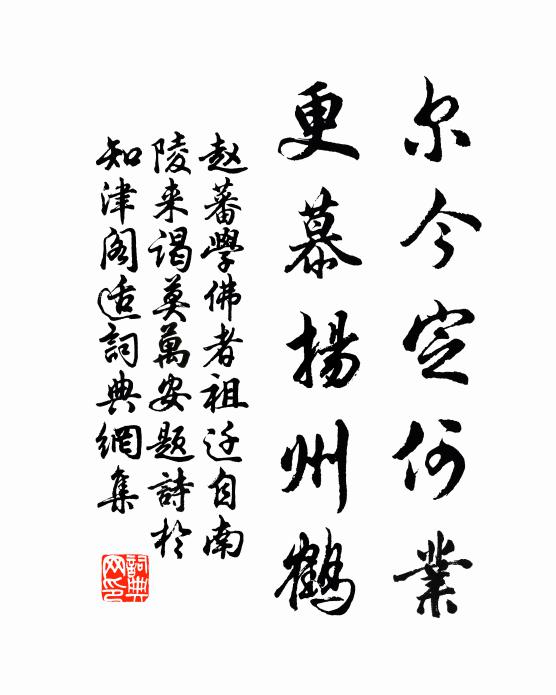 尔今定何業
更慕揚州鶴
赵蕃學佛者祖迁自南
陵来谒莫萬安题詩於
知津阁适詞典網集
詞典
网印